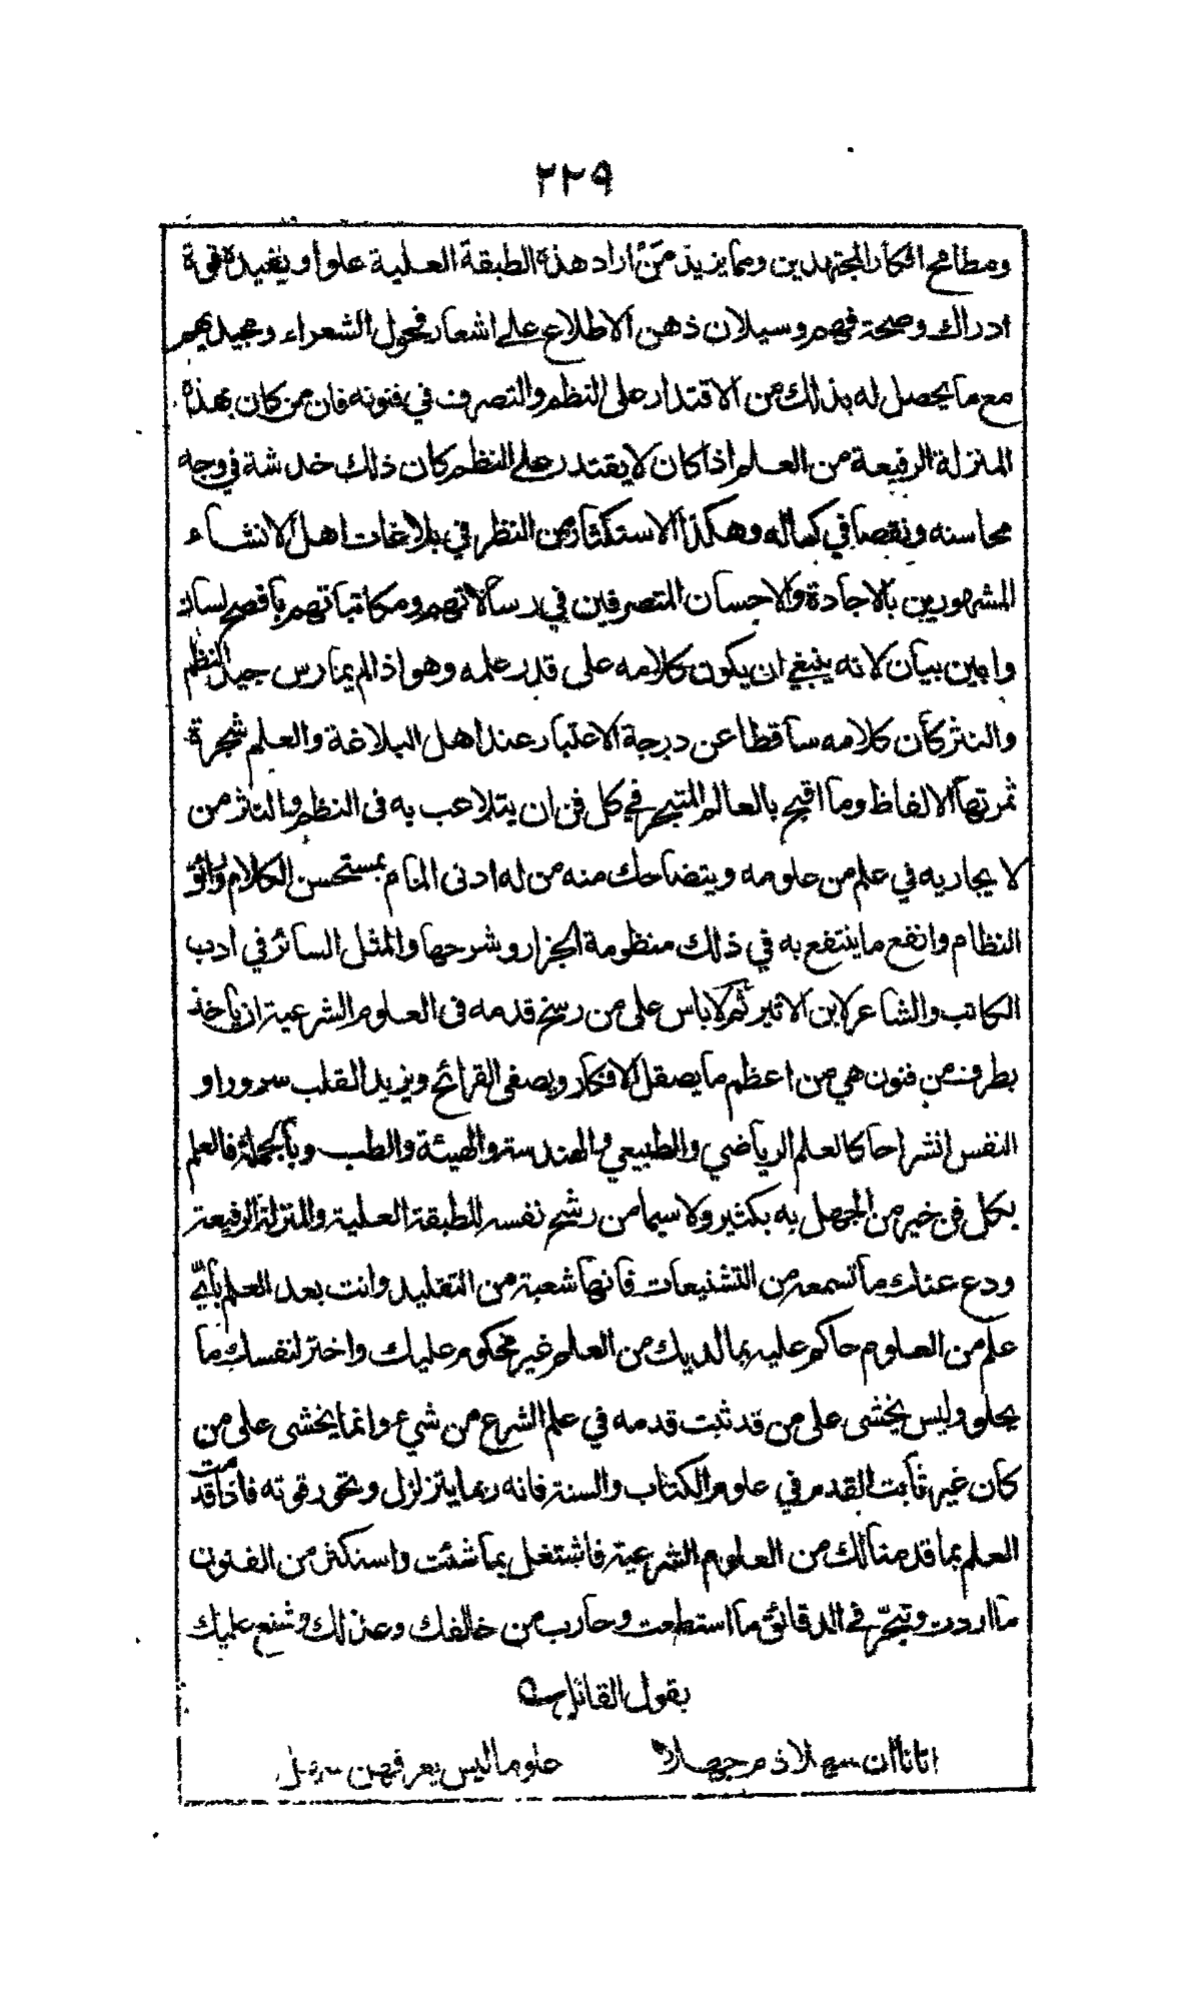 ٢٢٩
ومطامح افكار المجتهدين ومما يزيد من اراد هذه الطبقة العلية علوا ويفيده قوة
ادراك وصحة فهم وسيلان ذهن الاطلاع على اشعار فحول الشعراء ومجيديهم
مع ما يحصل له بذلك من الاقتدار على النظم والتصرف في فنونه فان من كان بهذه
المنزلة الرفيعة من العلم اذا كان لا يقتدر على النظم كان ذلك خدشة في وجه
محاسنه ونقصا في كماله وهكذا الاستكثار من النظر في بلاغات اهل الانشاء
المشهورين بالاجادة والاحسان المتصرفين في رسالاتهم ومكاتباتهم بافصح لسان
وابين بيان لانه ينبغي ان يكون كلامه على قدر علمه وهو اذا لم يمارس جيد النظم
والنثر كان كلامه ساقطا عن درجة الاعتبار عند اهل البلاغة والعلم شجرة
ثمرتها الالفاظ وما اقبح بالعالم المتبحر في كل فن ان يتلاعب به في النظم والنثر من
لا يجاريه في علم من علومه ويتضاحك منه من له ادنى المام بمستحسن الكلام ورائق
النظام وانفع ما ينتفع به في ذلك منظومة الجزار وشرحها والمثل السائر في ادب
الكاتب والشاعر لابن الاثير ثم لا باس على من رسخ قدمه في العلوم الشرعية ان ياخذ
بطرف من فنون هي من اعظم ما يصقل الافكار ويصفى القرائح ويزيد القلب سرورا و
النفس انشراحا كالعلم الرياضي والطبيعي والهندسة والهيئة والطب وبالجملة فالعلم
بكل فن خير من الجهل به بكثير ولا سيما من رشح نفسه للطبقة العلية والمنزلة الرفيعة
ودع عنك ما تسمعه من التشنيعات فانها شعبة من التقليد وانت بعد العلم بايّ
علم من العلوم حاكم عليه بما لديك من العلم غير محكوم عليك واختر لنفسك ما
يحلو وليس يخشى على من قد ثبت قدمه في علم الشرع من شيء وانما يخشى على من
كان غير ثابت القدم في علوم الكتاب والسنة فانه ربما يتزلزل وتخور قوته فاذا قدمت
العلم بما قدمنا لك من العلوم الشرعية فاشتغل بما شئت واستكثر من الفنون
ما اردت وتبحّر في الدقائق ما استطعت وحارب من خالفك وعذلك وشنع عليك
بقول القائل
اتانا ان سهلا ذم جهلا علوما ليس يعرفهن سهل